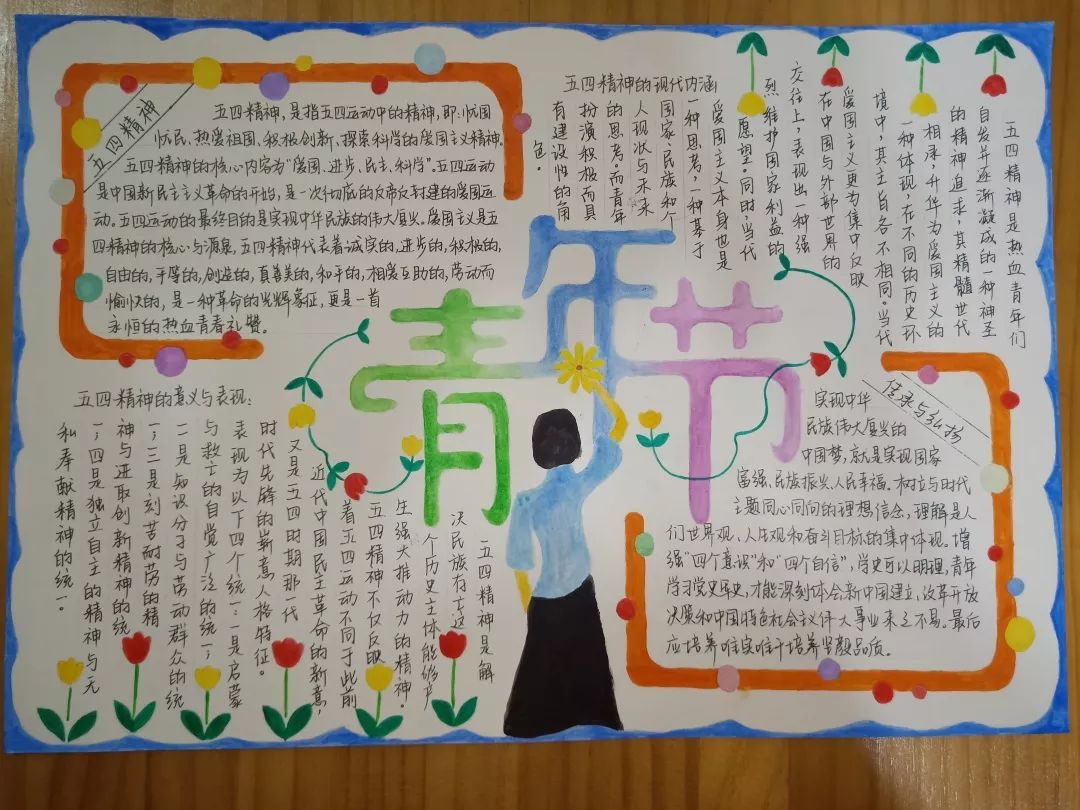 五四精神
五四精神，是指五四运动中的精神，即：忧国
忧民、热爱祖国、积极创新、探索科学的爱国主义精神。
五四精神的核心内容为“爱国、进步、民主、科学”。五四运动
是中国新民主主义革命的开始，是一次彻底的反帝反封建的爱国运
动。五四运动的最终目的是实现中华民族的伟大复兴。爱国主义是五
四精神的核心与源泉，五四精神代表着诚实的，进步的，积极的，
自由的，平等的，创造的，真善美的，和平的，相爱互助的，劳动而
愉快的，是一种革命的光辉象征，更是一首
永恒的热血青春礼赞。
五四精神的现代内涵
五四精神是热血青年们
自发并逐渐凝成的一种神圣
的精神追求，其精髓世代
相承，升华为爱国主义的
一种体现，在不同的历史环
境中，其主旨各不相同。当代
爱国主义更为集中反映
在中国与外部世界的
交往上，表现出一种强
烈维护国家利益的
愿望。同时，当代
爱国主义本身也是
一种思考，一种基于
国家、民族和个
人现状与未来
的思考。而青年
扮演积极而具
有建设性的角
色。
青年节
五四精神的意义与表现：
五四精神是解
决民族存亡这
个历史主体能够产
生强大推动力的精神。
五四精神不仅反映
着五四运动不同于此前
近代中国民主革命的新意，
又是五四时期那一代
时代先锋的崭意人格特征。
表现为以下四个统一：一是启蒙
与救亡的自觉广泛的统一；
二是知识分子与劳动群众的统
一；三是刻苦耐劳的精
神与进取创新精神的统
一；四是独立自主的精神与无
私奉献精神的统一。
传承与弘扬
实现中华
民族伟大复兴的
中国梦，就是实现国家
富强、民族振兴、人民幸福。树立与时代
主题同心同向的理想信念，理解是人
们世界观、人生观和奋斗目标的集中体现。增
强“四个意识”和“四个自信”，学史可以明理，青年
学习党史军史，才能深刻体会新中国建立，改革开放
决策和中国特色社会主义伟大事业来之不易。最后
应培养唯实唯干培养坚毅品质。